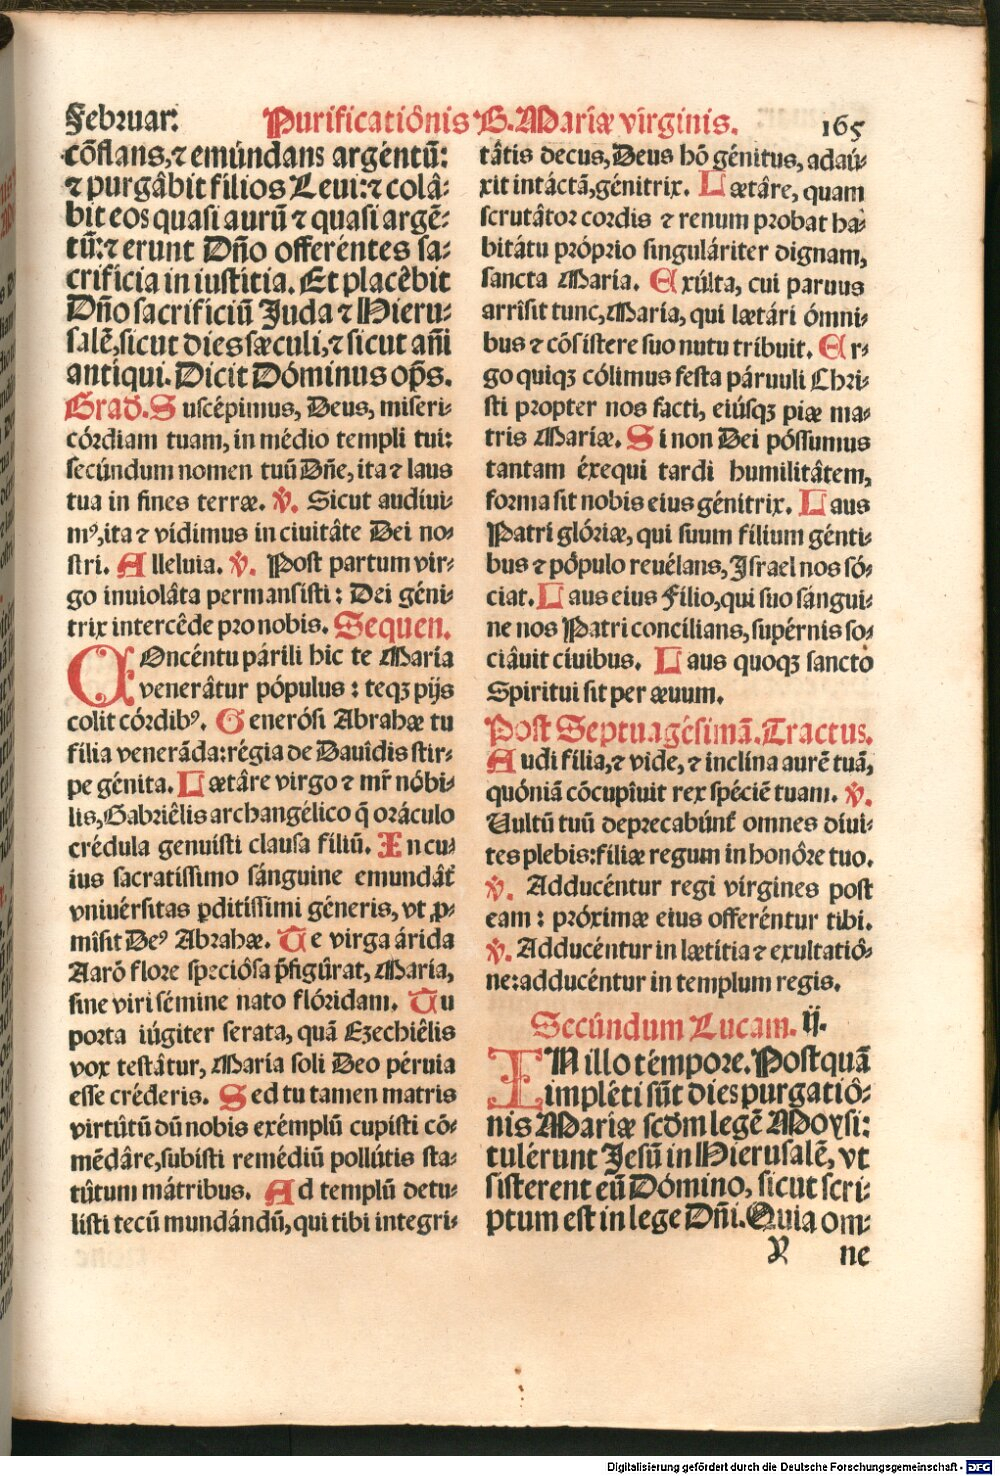 Februar: Purificatiônis B. Mariæ virginis. 165
cōflans,⁊ emúndans argéntū:
⁊ purgâbit filios Leui:⁊ colâ-
bit eos quasi aurū ⁊ quasi argē-
tū:⁊ erunt Dño offeréntes sa-
crifícia in iustitia. Et placêbit
Dño sacrificiū Juda ⁊ Hieru-
salē,sicut dies sæculi,⁊ sicut añi
antíqui. Dicit Dóminus op̄s.
Grad. Suscépimus, Deus, miseri-
córdiam tuam, in médio templi tui:
secúndum nomen tuū Dñe, ita ⁊ laus
tua in fines terræ. ℣. Sicut audíui-
mꝰ,ita ⁊ vídimus in ciuitâte Dei no-
stri. Alleluia. ℣. Post partum vir-
go inuiolâta permansísti: Dei géni-
trix intercêde pro nobis. Sequen.
COncéntu párili hic te María
venerâtur pópulus: teqꝫ pijs
colit córdibꝰ. Generósi Abrahæ tu
fília venerāda:régia de Dauîdis stir-
pe génita. Lætâre virgo ⁊ mr̄ nóbi-
lis,Gabriêlis archangélico q̄ oráculo
crédula genuísti clausa fíliū. In cu-
ius sacratíssimo sánguine emundât᷑
vniuérsitas ꝑditíssimi géneris, vt ꝓ-
mîsit Deꝰ Abrahæ. Te virga árida
Aarō flore speciôsa p̄figûrat, María,
sine viri sémine nato flóridam. Tu
porta iúgiter serata, quā Ezechiêlis
vox testâtur, María soli Deo péruia
esse créderis. Sed tu tamen matris
virtûtū dū nobis exémplū cupísti cō-
mēdâre,subísti remédiū pollútis sta-
tûtum mátribus. Ad templū detu-
listi tecū mundándū, qui tibi integri-
tâtis decus, Deus hō génitus, adaú-
xit intáctā,génitrix. Lætâre, quam
scrutâtor cordis ⁊ renum probat ha-
bitátu próprio singuláriter dignam,
sancta María. Exúlta, cui paruus
arrîsit tunc,María, qui lætári ómni-
bus ⁊ cōsístere suo nutu tríbuit. Er-
go quiqꝫ cólimus festa páruuli Chri-
sti propter nos facti, eiúsqꝫ piæ ma-
tris Maríæ. Si non Dei póssumus
tantam éxequi tardi humilitâtem,
forma sit nobis eius génitrix. Laus
Patri glóriæ, qui suum fílium génti-
bus ⁊ pópulo reuélans, Israel nos só-
ciat. Laus eius Filio,qui suo sángui-
ne nos Patri concílians,supérnis so-
ciâuit cíuibus. Laus quoqꝫ sancto
Spiritui sit per æuum.
Post Septuagésimā. Tractus.
Audi fília,⁊ vide, ⁊ inclína aurē tuā,
quóniā cōcupîuit rex spéciē tuam. ℣.
Vultū tuū deprecabúnt᷑ omnes díui-
tes plebis:fíliæ regum in honôre tuo.
℣. Adducéntur regi vírgines post
eam: próximæ eius offeréntur tibi.
℣. Adducéntur in lætítia ⁊ exultatiô-
ne:adducéntur in templum regis.
Secúndum Lucam. ij.
IN illo témpore. Postquā
implêti sūt dies purgatiô-
nis Mariæ scd̄m legē Moysi:
tulérunt Jesū in Hierusalē, vt
sisterent eū Dómino, sicut scri-
ptum est in lege Dñi. Quia om-
Y ne
Digitalisierung gefördert durch die Deutsche Forschungsgemeinschaft - DFG